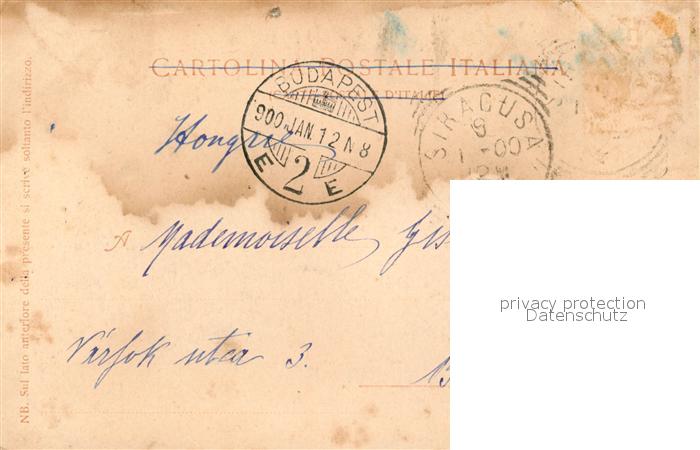 CARTOLINA POSTALE ITALIANA
D'ITALIE)
BUDAPEST
900 JAN 12 N 8
E 2 E
SIRACUSA
9
1-00
Hongrie
A Mademoiselle
Várfok utca 3.
privacy protection
Datenschutz
NB. Sul lato anteriore della presente si scrive soltanto l'indirizzo.